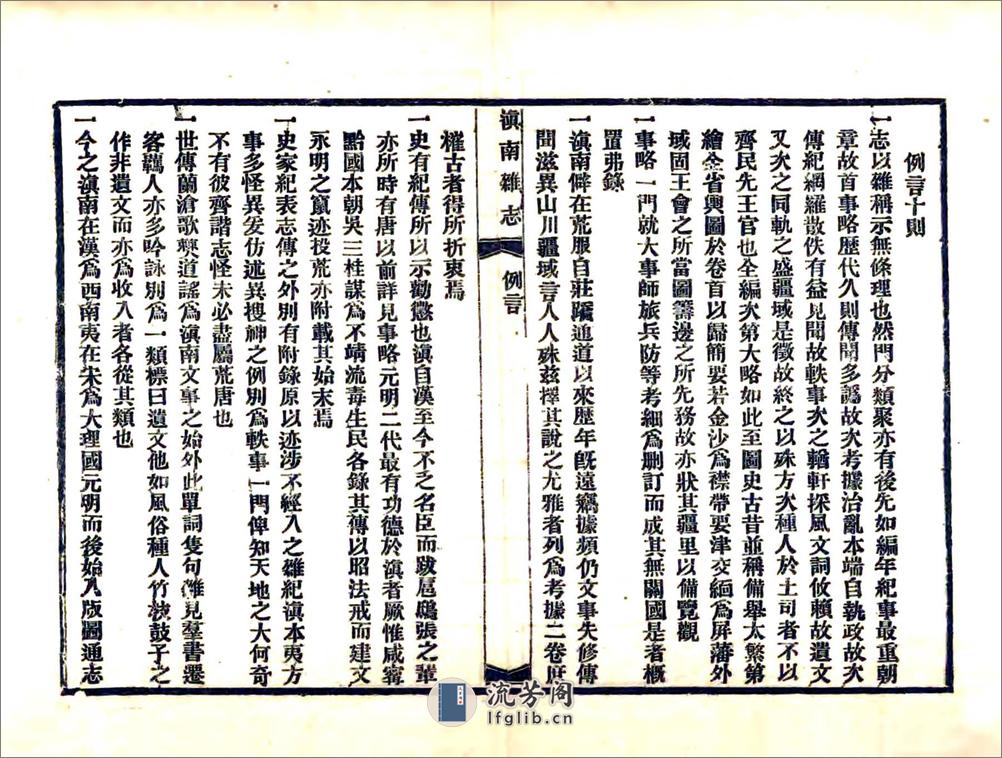 例言十則
一志以雜稱示無條理也然門分類聚亦有後先如編年紀事最重朝
章故首事略歷代久則傳聞多譌故次考據治亂本端自執政故次
傳紀網羅散佚有益見聞故軼事次之輶軒採風文詞攸賴故遺文
又次之同軌之盛疆域是徵故終之以殊方次種人於土司者不以
齊民先王官也全編次第大略如此至圖史古昔並稱備舉太繁第
繪全省輿圖於卷首以歸簡要若金沙為襟帶要津交緬為屏藩外
域固王會之所當圖籌邊之所先務故亦狀其疆里以備覽觀
一事略一門就大事師旅兵防等考細為删訂而成其無關國是者槪
置弗錄
一滇南僻在荒服自莊蹻通道以來歷年旣遠竊據頻仍文事失修傳
聞滋異山川疆域言人人殊兹擇其說之尤雅者列為考據二卷庶
滇南雜志
例言
㩁古者得所折衷焉
一史有紀傳所以示勸懲也滇自漢至今不乏名臣而跋扈鴟張之輩
亦所時有唐以前詳見事略元明二代最有功德於滇者厥惟咸寗
黔國本朝吳三桂謀為不靖流毒生民各錄其傳以昭法戒而建文
永明之竄迹投荒亦附載其始末焉
一史家紀表志傳之外別有附錄原以迹涉不經入之雜紀滇本夷方
事多怪異爰仿述異搜神之例別為軼事一門俾知天地之大何奇
不有彼齊諧志怪未必盡屬荒唐也
一世傳蘭滄歌㷳道謠為滇南文事之始外此單詞隻句雜見羣書遷
客羈人亦多吟詠別為一類標曰遺文他如風俗種人竹㷳鼓子之
作非遺文而亦為收入者各從其類也
一今之滇南在漢為西南夷在宋為大理國元明而後始入版圖通志
流芳阁
lfglib.cn